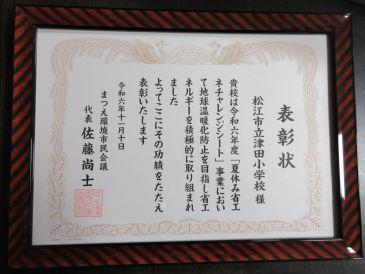 表彰状
松江市立津田小学校 様
貴校は令和六年度「夏休み省エ
ネチャレンジシート」事業におい
て地球温暖化防止を目指し省エ
ネルギーを積極的に取り組まれ
ました
よってここにその功績をたたえ
表彰いたします
令和六年十一月十日
まつえ環境市民会議
代表 佐藤尚士